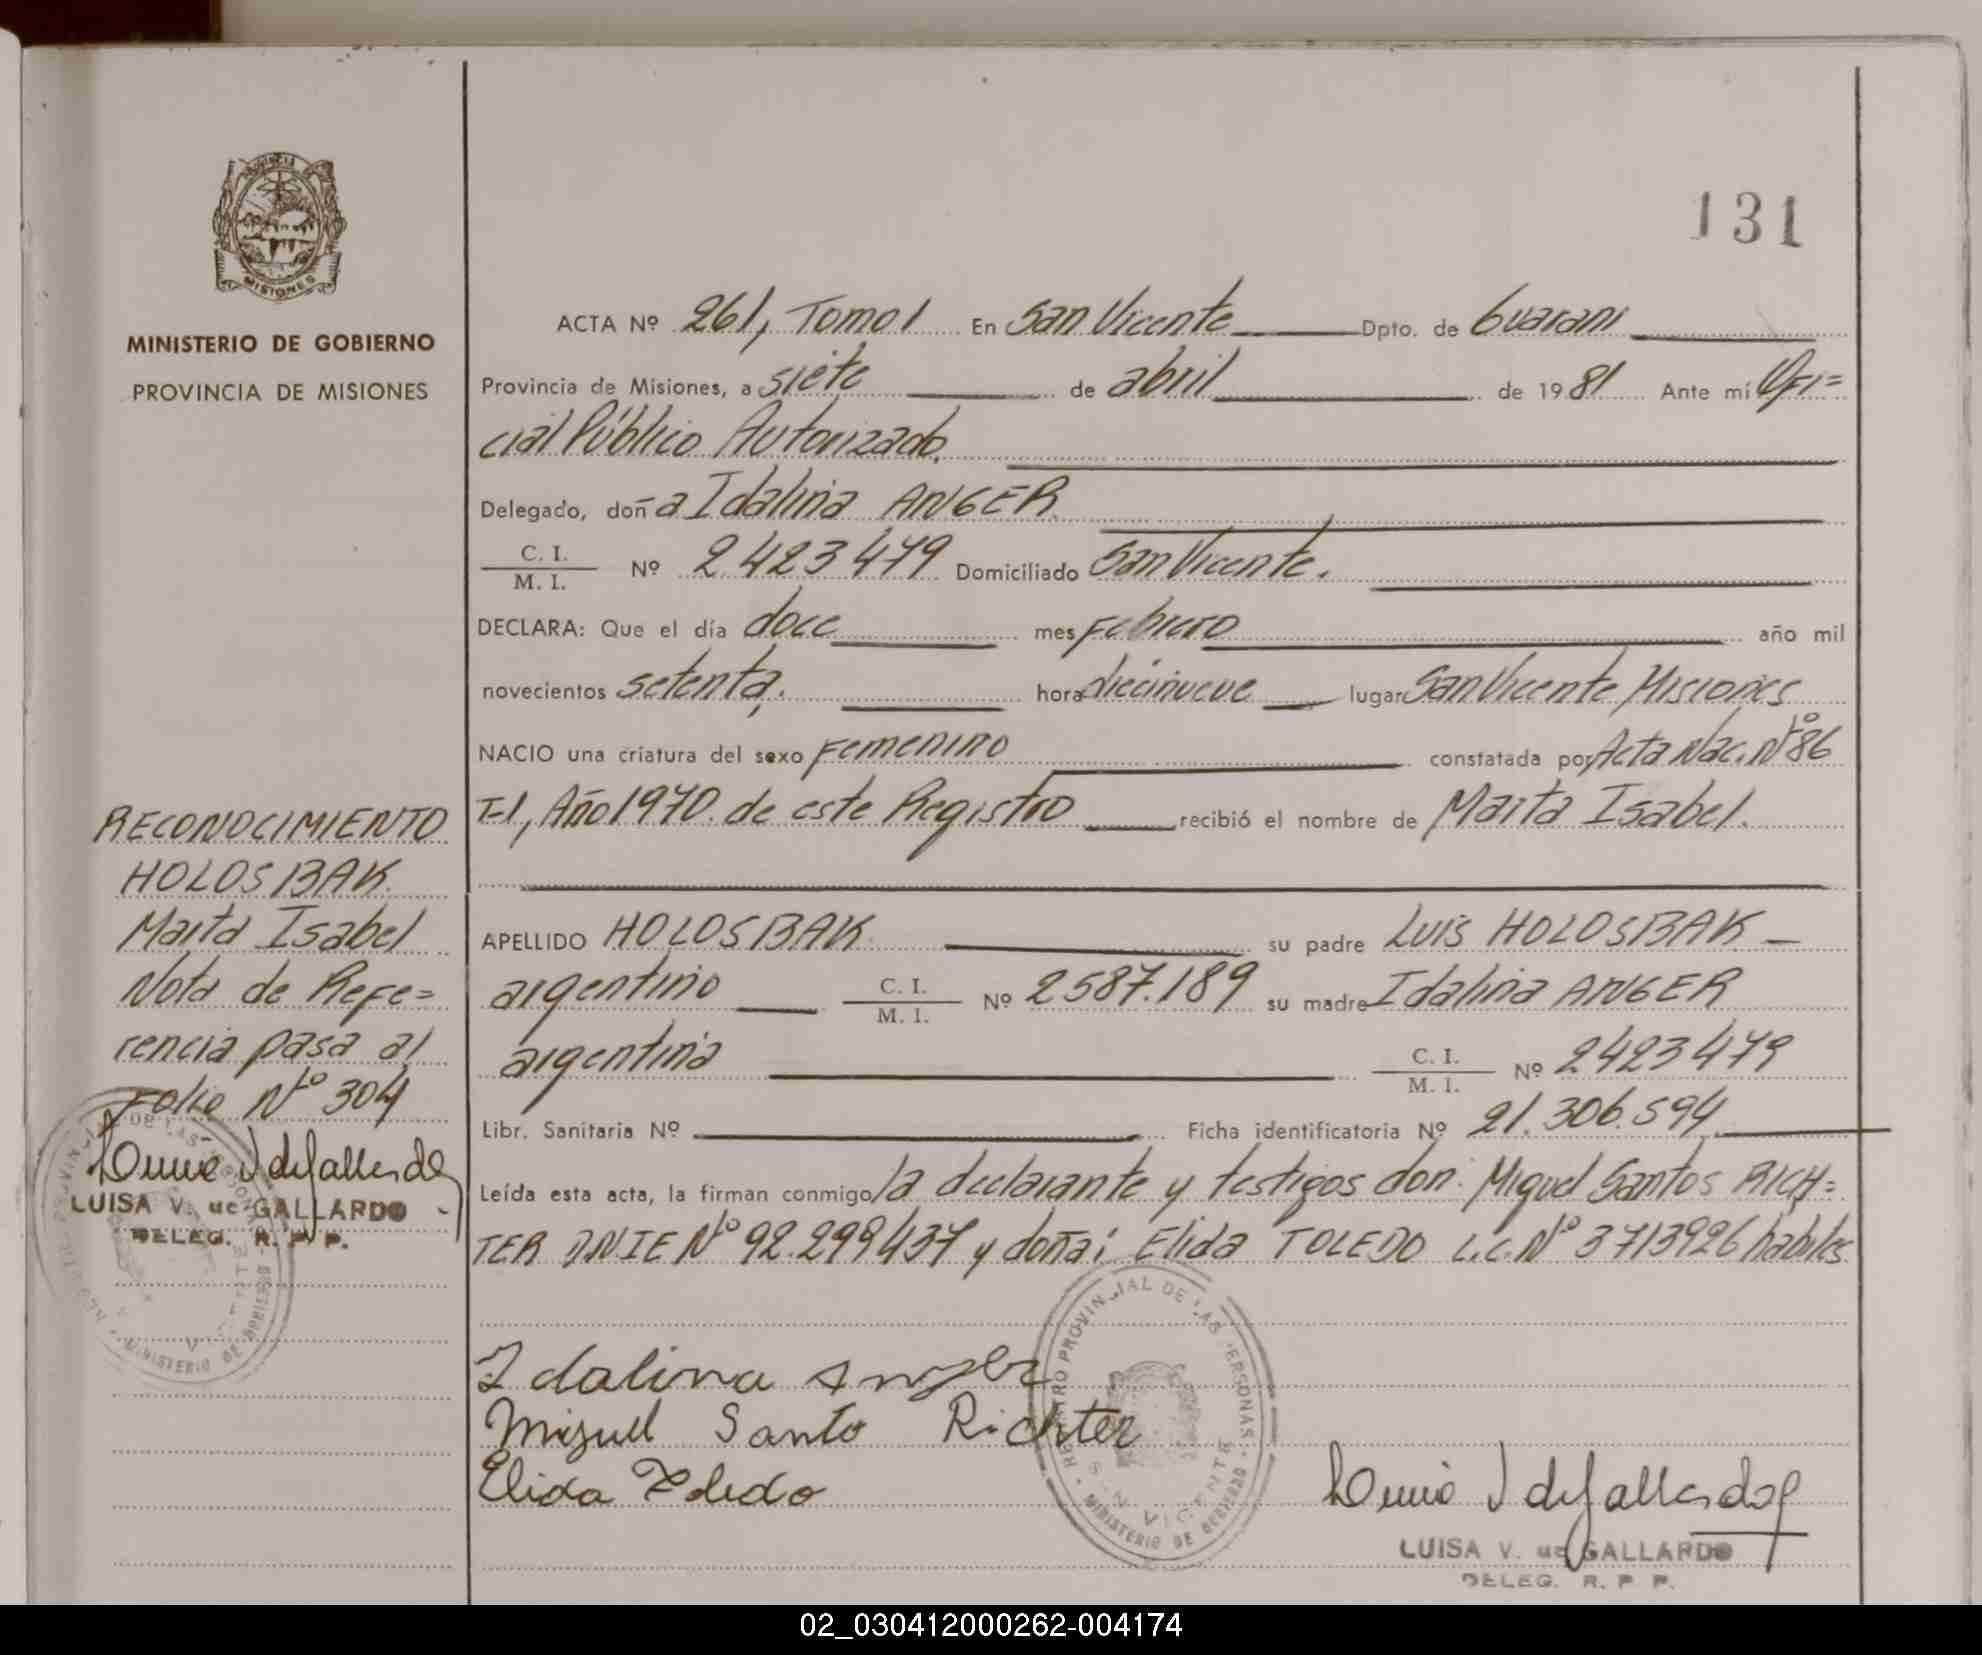 131
MINISTERIO DE GOBIERNO
PROVINCIA DE MISIONES
RECONOCIMIENTO
HOLOSBAK
Marta Isabel
Nota de Refe=
rencia pasa al
Folio Nº 304
LUISA V. de GALLARDO
DELEG. R. P. P.
ACTA Nº 261, Tomo 1 En San Vicente Dpto. de Guaraní
Provincia de Misiones, a siete de abril de 1981 Ante mí Ofi=
cial Público Autorizado.
Delegado, doña Idalina ANGER
C. I. / M. I. Nº 2423479 Domiciliado San Vicente.
DECLARA: Que el día doce mes Febrero año mil
novecientos setenta, hora diecinueve lugar San Vicente Misiones
NACIO una criatura del sexo Femenino constatada por Acta Nac. Nº 86
T-1, Año 1970. de este Registro recibió el nombre de Marta Isabel.
APELLIDO HOLOSBAK su padre Luis HOLOSBAK
argentino C. I. / M. I. Nº 2587.189 su madre Idalina ANGER
argentina C. I. / M. I. Nº 2423479
Libr. Sanitaria Nº Ficha identificatoria Nº 21.306.594
Leída esta acta, la firman conmigo la declarante y testigos don: Miguel Santos RICH=
TER DNIE Nº 92.299437 y doña: Elida TOLEDO L.C. Nº 3713926 habiles
Idalina Anger
Miguel Santo Richter
Elida Toledo
REGISTRO PROVINCIAL DE LAS PERSONAS
SAN VICENTE
MINISTERIO DE GOBIERNO
LUISA V. de GALLARDO
DELEG. R. P. P.
02_030412000262-004174